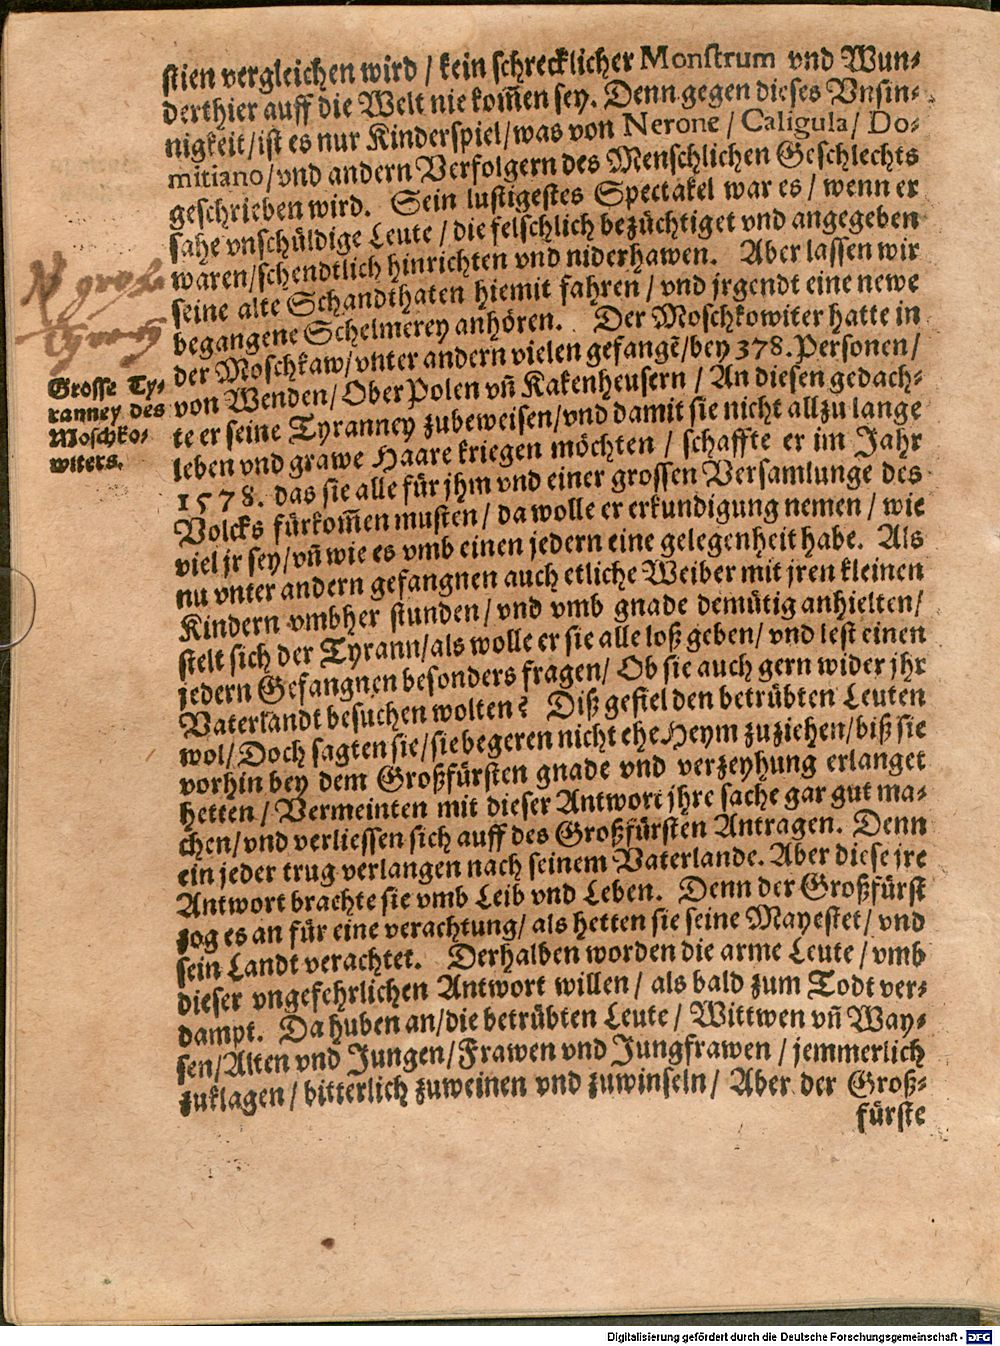 stien vergleichen wird / kein schrecklicher Monstrum vnd Wun-
derthier auff die Welt nie kom̃en sey. Denn gegen dieses Vnsin-
nigkeit / ist es nur Kinderspiel / was von Nerone / Caligula / Do-
mitiano / vnd andern Verfolgern des Menschlichen Geschlechts
geschrieben wird. Sein lustigestes Spectakel war es / wenn er
sahe vnschüldige Leute / die felschlich bezüchtiget vnd angegeben
waren / schendtlich hinrichten vnd niderhawen. Aber lassen wir
seine alte Schandthaten hiemit fahren / vnd jrgendt eine newe
begangene Schelmerey anhören. Der Moschkowiter hatte in
der Moschkaw / vnter andern vielen gefangẽ / bey 378. Personen /
von Wenden / Ober Polen vñ Kakenheusern / An diesen gedach-
te er seine Tyranney zubeweisen / vnd damit sie nicht allzu lange
leben vnd grawe Haare kriegen möchten / schaffte er im Jahr
1578. das sie alle für jhm vnd einer grossen Versamlunge des
Volcks fürkom̃en musten / da wolle er erkundigung nemen / wie
viel jr sey / vñ wie es vmb einen jedern eine gelegenheit habe. Als
nu vnter andern gefangnen auch etliche Weiber mit jren kleinen
Kindern vmbher stunden / vnd vmb gnade demütig anhielten /
stelt sich der Tyrann / als wolle er sie alle loß geben / vnd lest einen
jedern Gefangnen besonders fragen / Ob sie auch gern wider jhr
Vaterlandt besuchen wolten? Diß gefiel den betrübten Leuten
wol / Doch sagten sie / sie begeren nicht ehe Heym zuziehen / biß sie
vorhin bey dem Großfürsten gnade vnd verzeyhung erlanget
hetten / Vermeinten mit dieser Antwort jhre sache gar gut ma-
chen / vnd verliessen sich auff des Großfürsten Antragen. Denn
ein jeder trug verlangen nach seinem Vaterlande. Aber diese jre
Antwort brachte sie vmb Leib vnd Leben. Denn der Großfürst
zog es an für eine verachtung / als hetten sie seine Mayestet / vnd
sein Landt verachtet. Derhalben worden die arme Leute / vmb
dieser vngefehrlichen Antwort willen / als bald zum Todt ver-
dampt. Da huben an / die betrübten Leute / Wittwen vñ Way-
sen / Alten vnd Jungen / Frawen vnd Jungfrawen / jemmerlich
zuklagen / bitterlich zuweinen vnd zuwinseln / Aber der Groß-
fürste
Grosse Ty-
ranney des
Moschko-
witers.
Digitalisierung gefördert durch die Deutsche Forschungsgemeinschaft - DFG